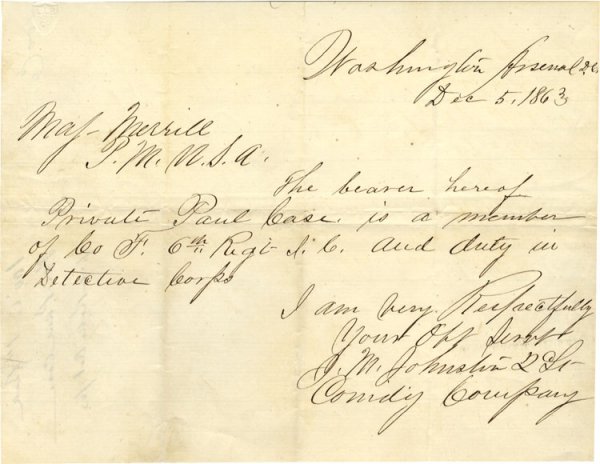 Washington Arsenal D.C.
Dec 5. 1863
Maj- Merrill
P. M. U. S. A.
The bearer hereof
Private Paul Case. is a member
of Co F. 6th Regt I. C. and duty in
Detective Corps
I am very Respectfully
Your Obt Servt
J. M. Johnston 2 Lt
Comdg Company